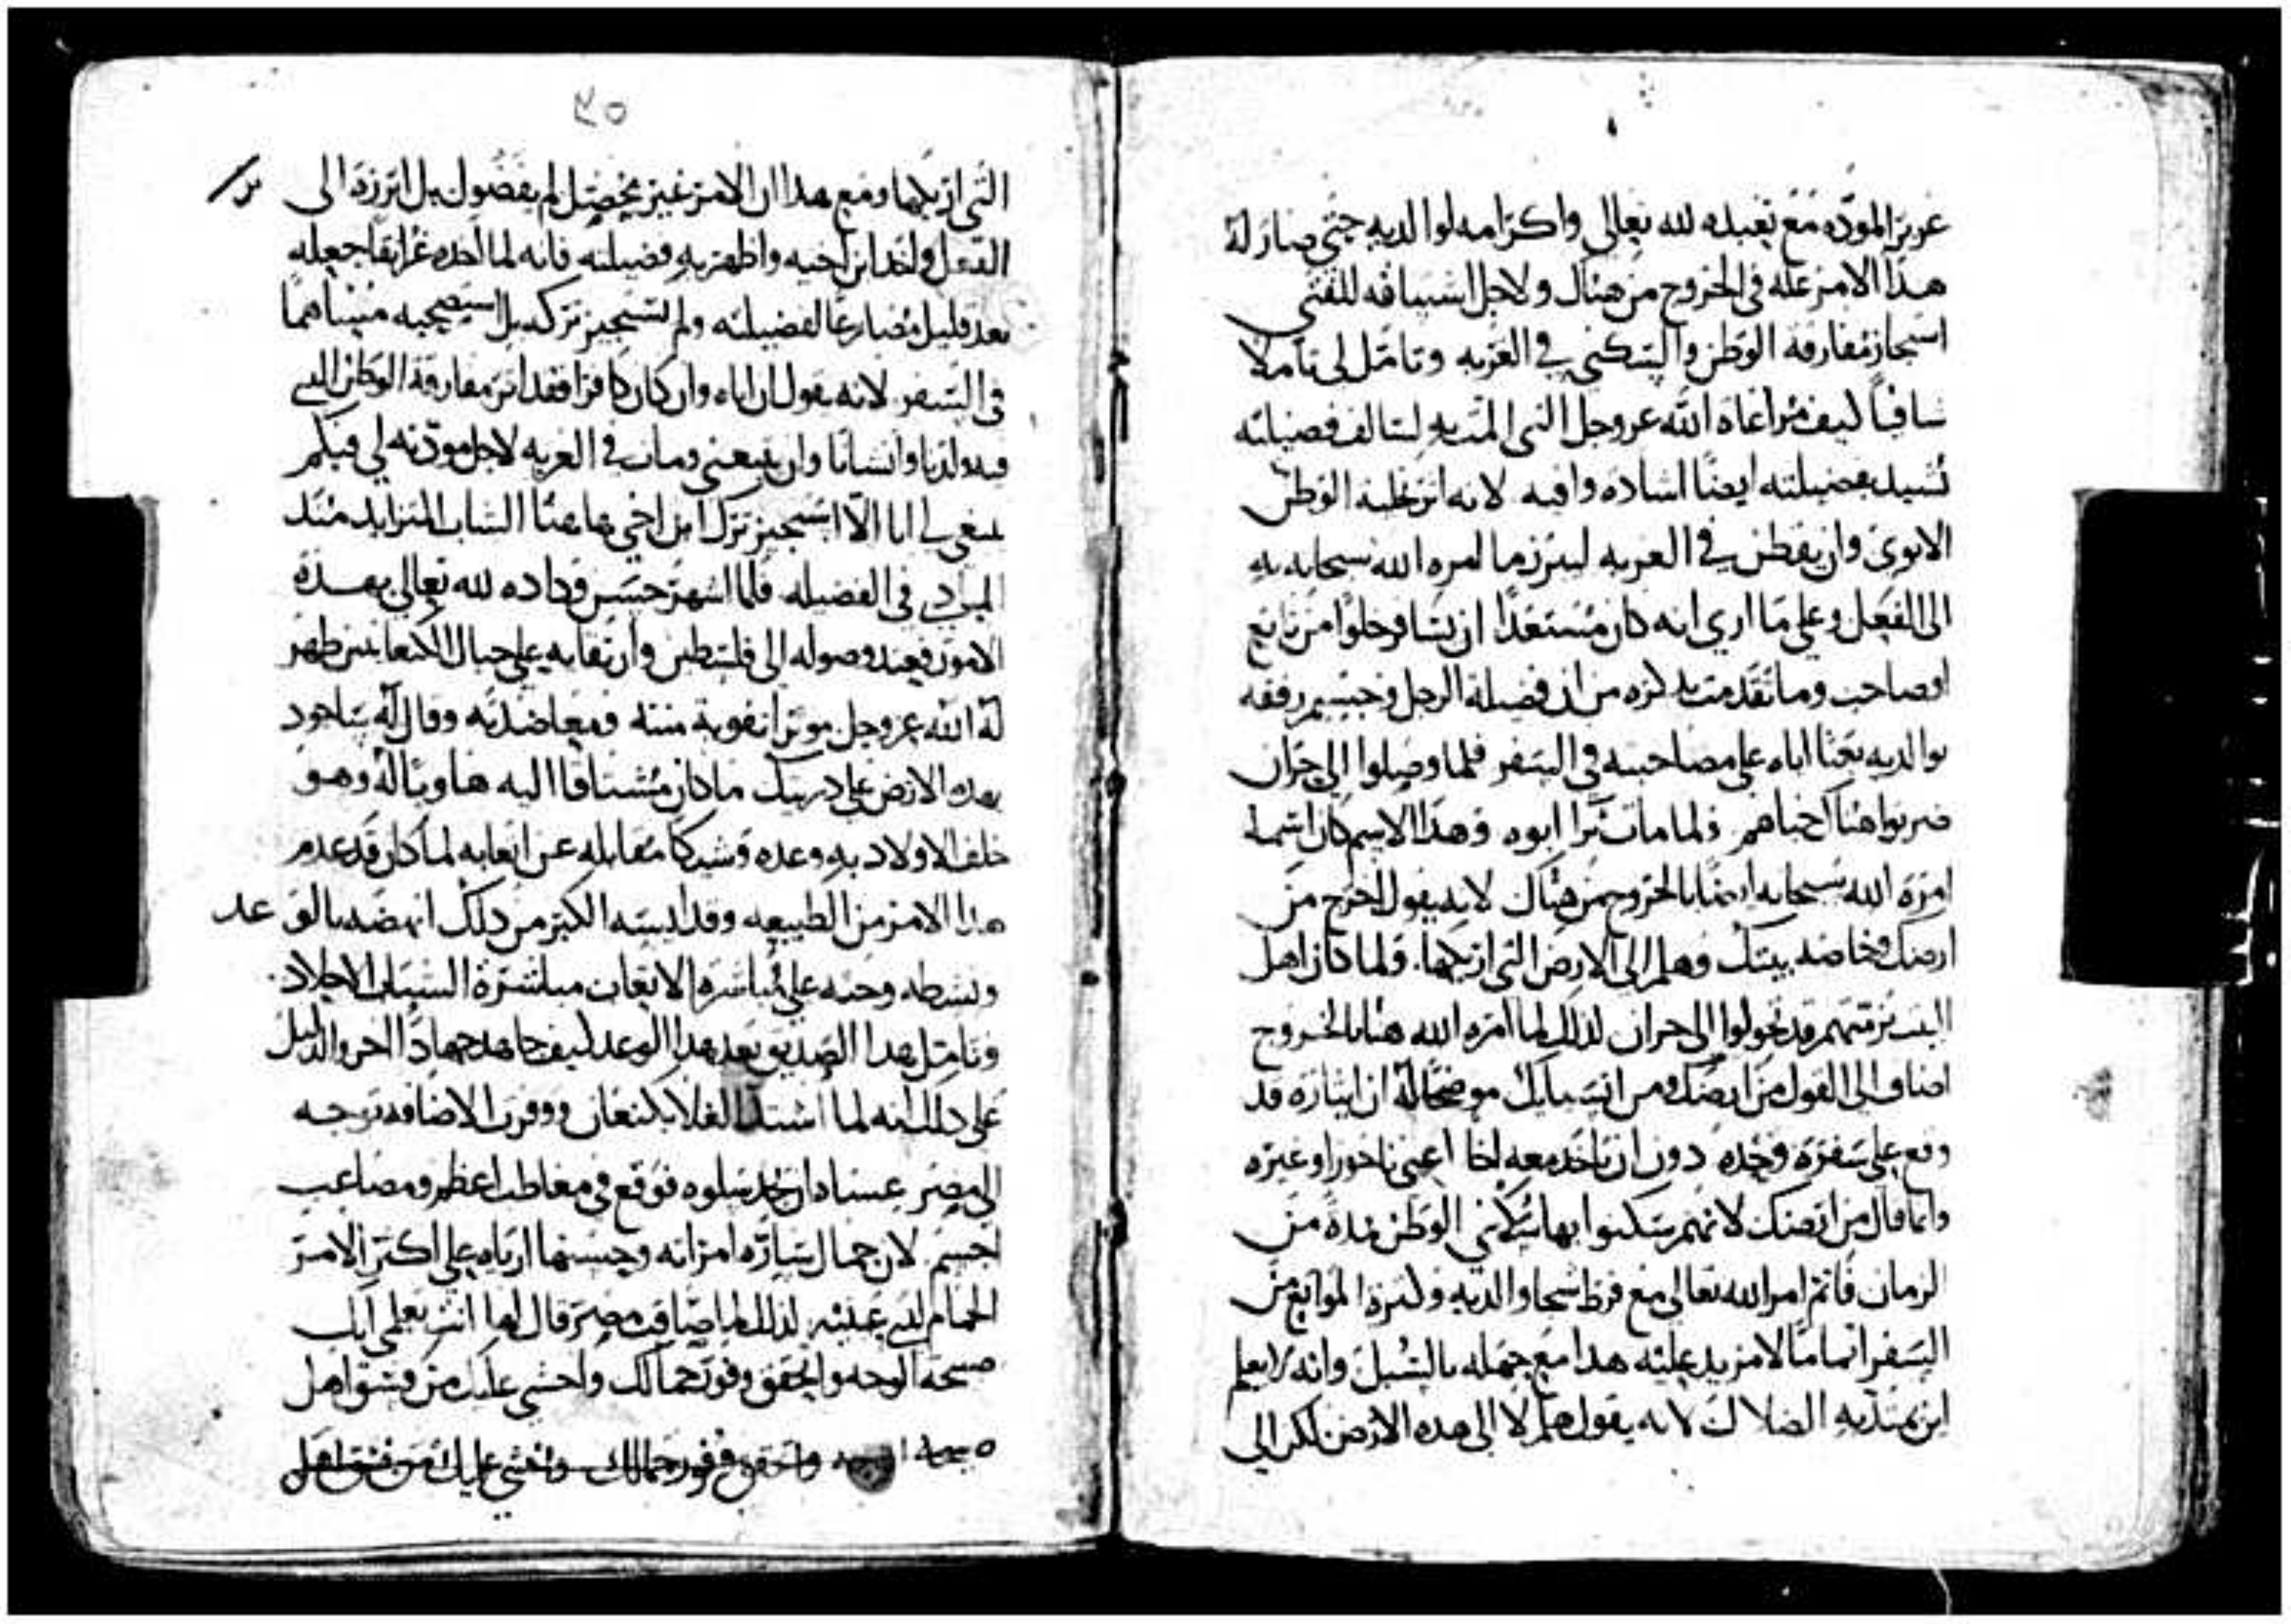 عزيز المودّه مع تعبده لله تعالى واكرامه لوالديه حتى صار له
هذا الامر عله في الخروج من هناك ولاجل اشتياقه للفتى
استجاز مفارقة الوطن والسكنى في الغربه وتامّل لي تاملا
شافياً كيف مراعاة الله عز وجل التي المت به لتالف فضيلته
تشيد بفضيلته ايضًا اشاده وافيه لانه اثر تخلية الوطن
الابوي وان يقطن في الغربه ليبرز ما امره الله سبحانه به
الى الفعل وعلى ما اري انه كان مستعدًا ان يسافر خلوًا من تابع
او صاحب وما تقدمت بذكره من ان فضيلة الرجل وجسيم رفقه
بوالديه بعثا اباه على مصاحبته في السفر فلما وصلوا الى حران
ضربوا هناك خباهم ولما مات ترا ابوه وهذا الاسم كان اسمه
امره الله سبحانه ايضًا بالخروج من هناك لانه يقول اخرج من
ارضك وخاصة بيتك وهلم الى الارض التي اريكها. ولما كان اهل
البيت برمتهم قد تحولوا الى حران لذلك لما امره الله هنا بالخروج
اضاف الى القول من ارضك ومن انسبايك موضحًا له ان ايثاره قد
وقع على سفره وحده دون ان ياخد معه اخا اعني ناحور او غيره
وانما قال من ارضك لانهم سكنوا بها سكنى الوطن مدة من
الزمان فاتم امر الله تعالى مع فرط شجا والديه وكثرة الموانع من
السفر اتمامًا لا مزيد عليه هدا مع جهله بالسبل وانه لا يعلم
اين تهتدي به المسالك لانه يقول هلم لا الى هده الارض لكن الى
٢٥
التي اريكها ومع هدا ان الامر غير محصل لم يفضول بل ابرزه الى
الفعل واخد ابن اخيه واظهر به فضيلته فانه لما اخده غرانقا جعله
بعد قليل مضارعًا لفضيلته ولم يستجيز تركه بل استصحبه متبناهما
في السفر لانه يقول ان اباه وان كان كافرا فقد اثر مفارقة الوطن الدي
فيه ولدنا وانشانا وان يتبعني ومات في الغربه لاجل مودته لي فبكم
ينبغي لي انا الّا استجيز ترك ابن اخي هاهنا الشاب المتزايد مند
المبادي في الفضيله فلما اشهر حسن وداده لله تعالى بهذه
الامور فعند وصوله الى فلسطين وارتقايه على جبال الكنعانيين ظهر
له الله عز وجل موثرا تقوية منته ومعاضدته وقال له ساجود
بهده الارض على دريتك ما كان مشتاقا اليه هاويًا له وهو
خلف الاولاد به وعده وشيكا مقابله عن اتعابه لما كان قد عدم
هدا الامر من الطبيعه وقد ايسه الكبر من دلك انهضه بالوعد
ونشطه وحثه على مباشرة الاتعاب مباشرة الشباب الاجلاد
وتامل هدا الصديق بعد هدا الوعد كيف جاهد جهادًا اخر والدليل
على دلك انه لما اشتد الغلا بكنعان ووفرت الاضاقه توجه
الى مصر عساه ان يجد سلوه فوقع في معاطب اعظم ومصاعب
اجسم لان جمال ساره امراته وحسنها ارباه على اكثر الامر
الحمام لدى عينيه لذلك لما صاقب مصر قال لها انتي تعلمي انك
صبيحة الوجه واتحقق وفور جمالك واخشى عليك من فسق اهل
صبيحة الوجه واتحقق وفور جمالك واخشى عليك من فسق اهل